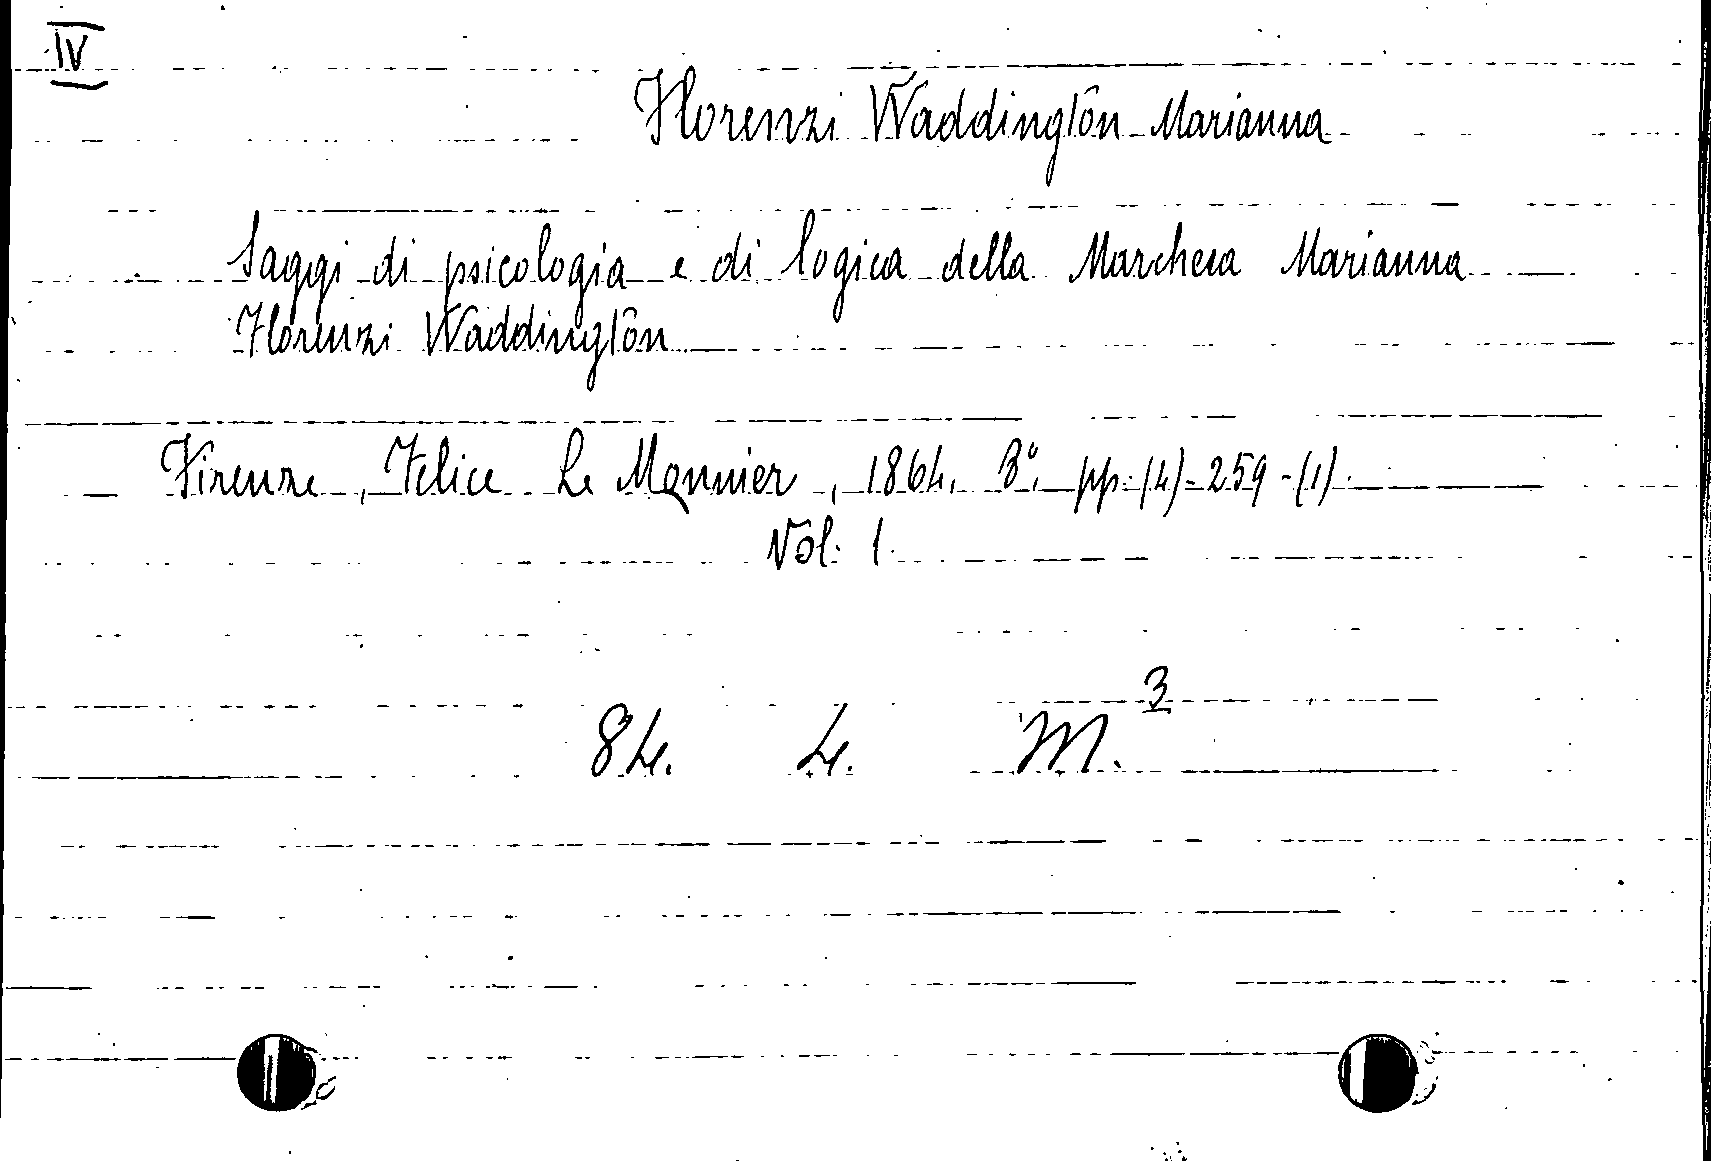 IV
Florenzi Waddington Marianna
Saggi di psicologia e di logica della Marchesa Marianna
Florenzi Waddington
Firenze, Felice Le Monnier, 1864, 8°, pp. (4)-259-(1).
Vol. 1.
84. 4. M.3